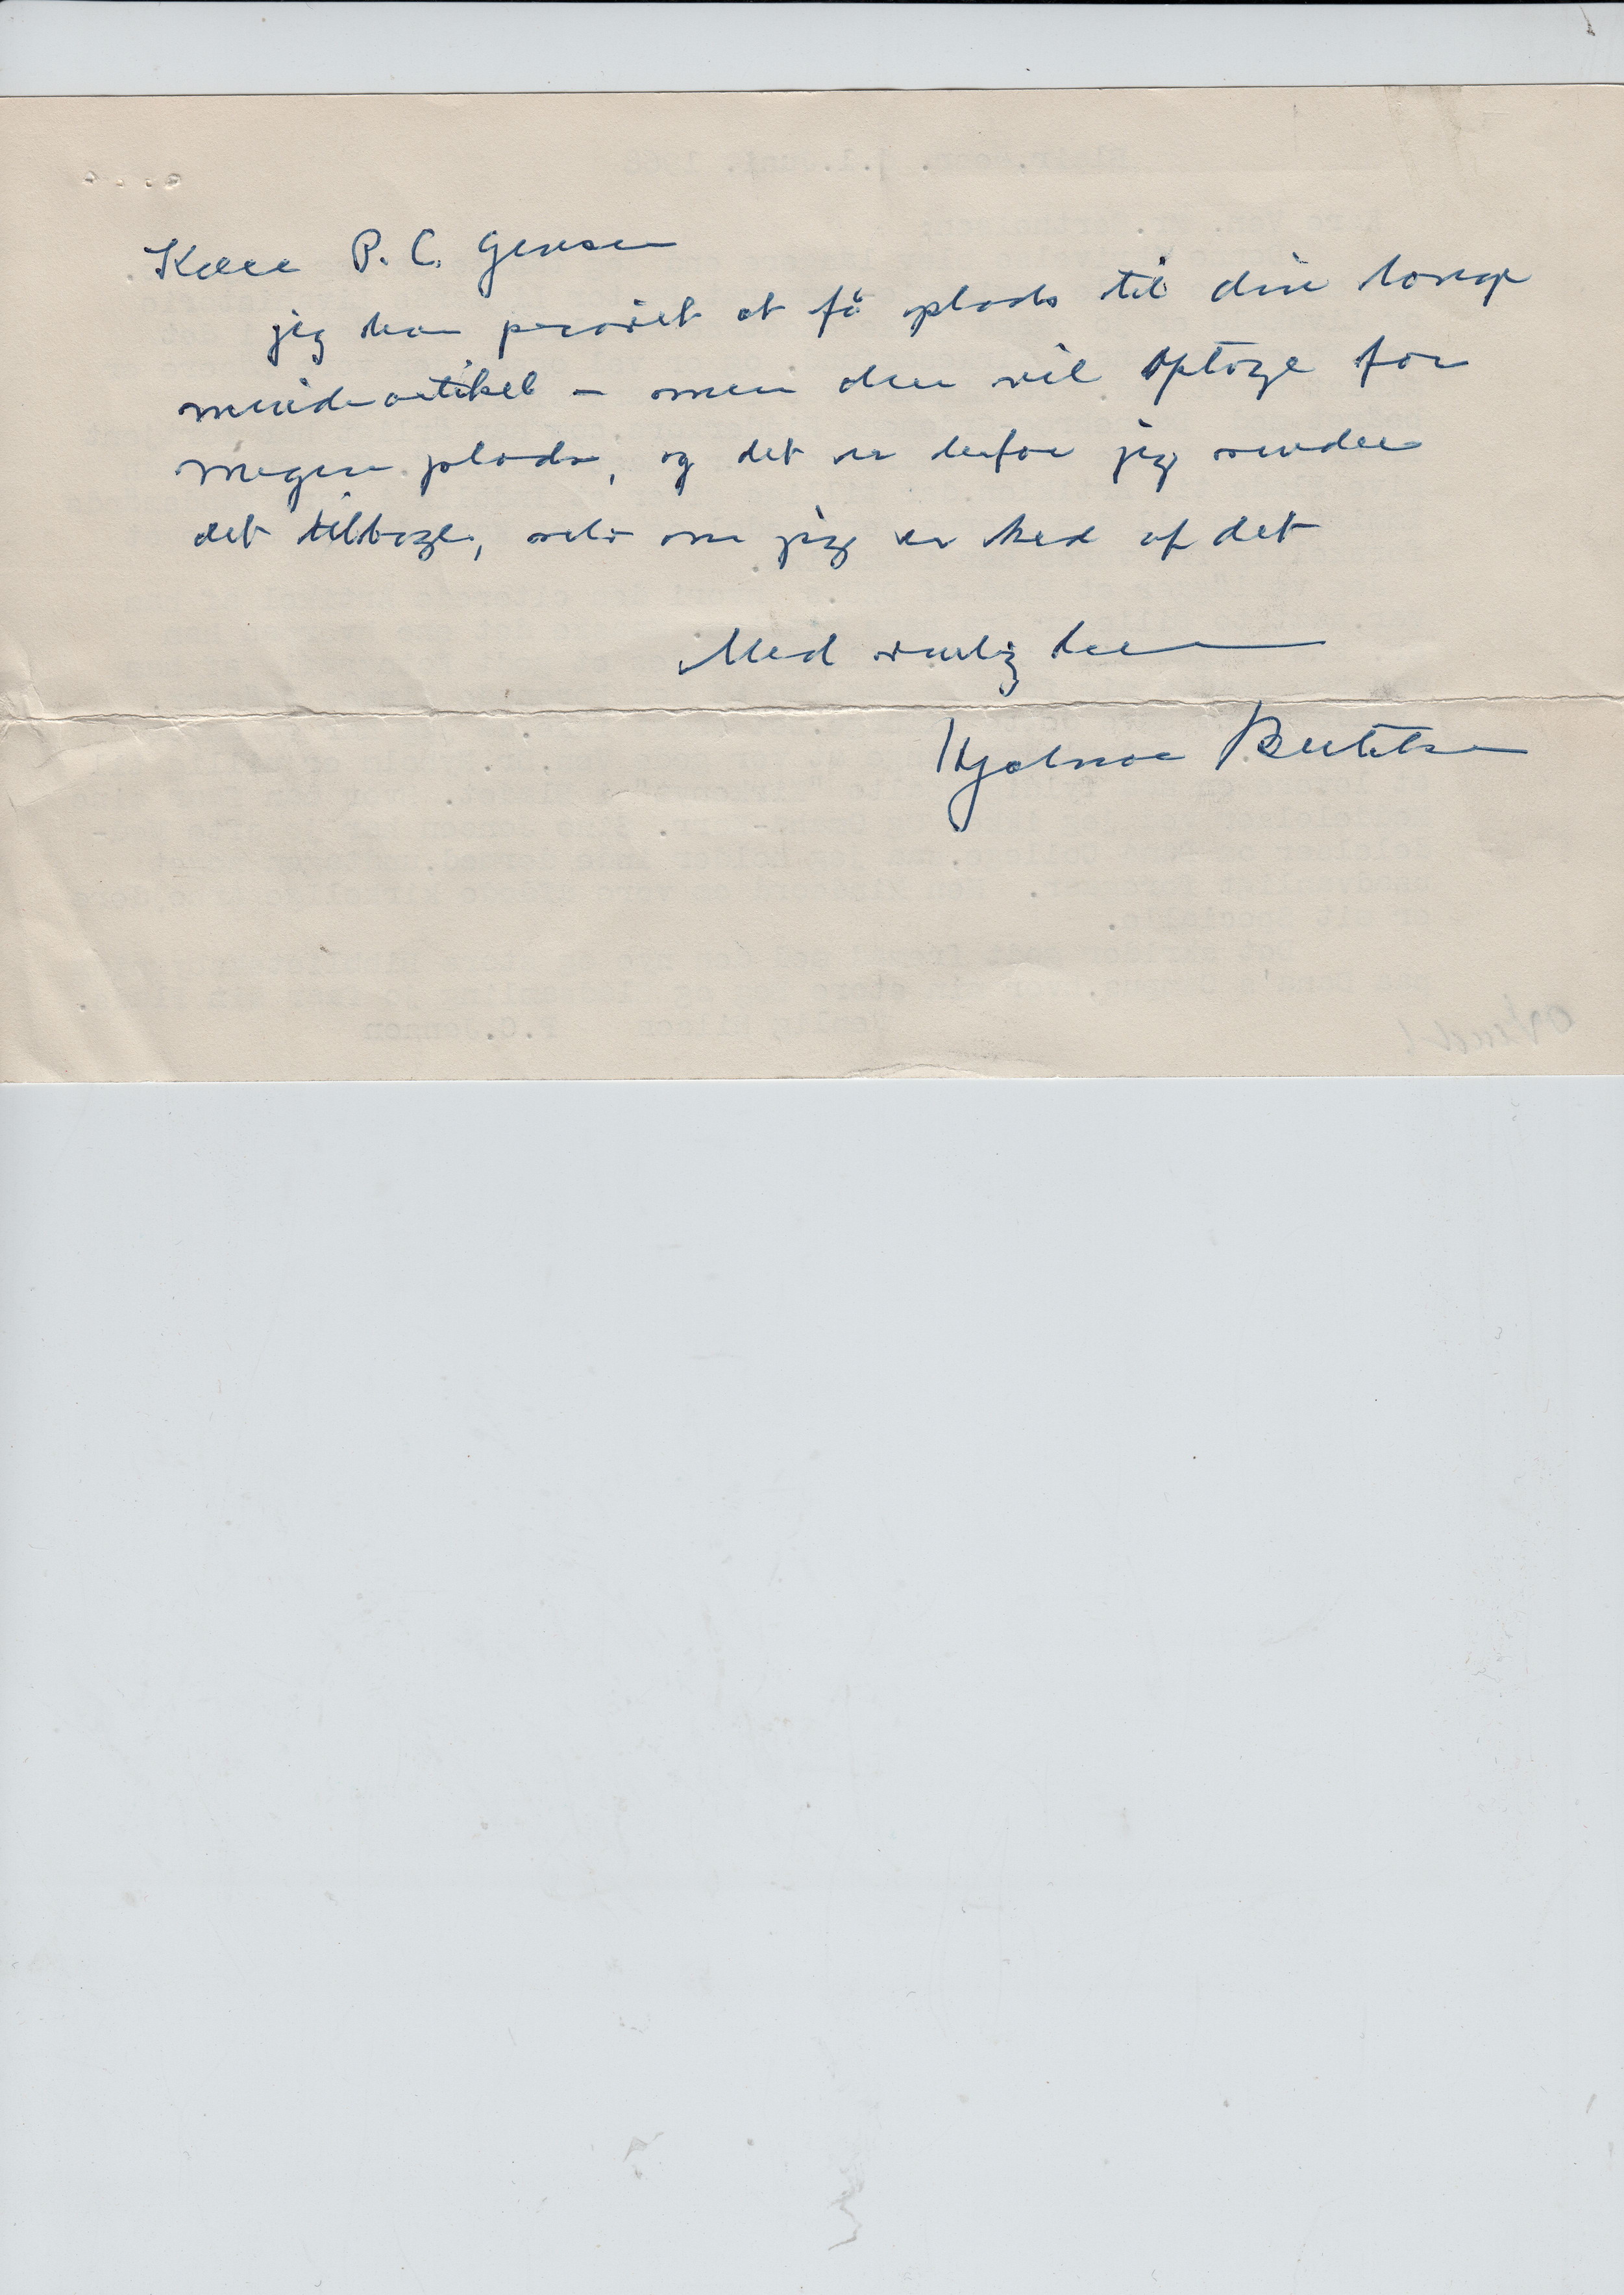 Kære P. C. Jensen
jeg har prøvet at få plads til din lange
mindeartikel – men den vil optage for
megen plads, og det er derfor jeg sender
det tilbage, selv om jeg er ked af det
Med venlig hilsen
Hjalmar Bertelsen